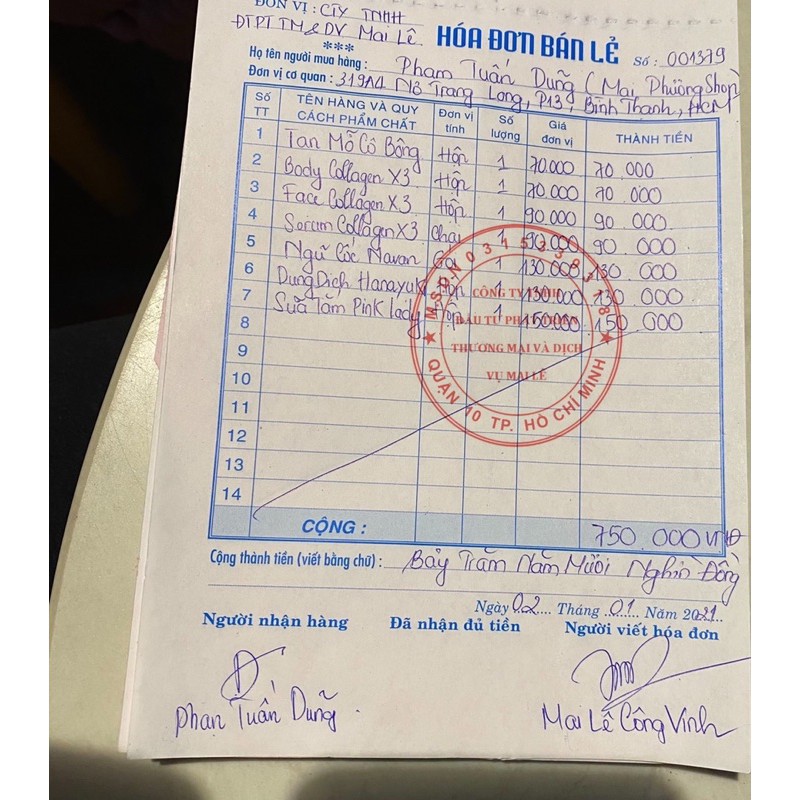 ĐƠN VỊ : CTY TNHH
ĐTPT TM & DV Mai Lê.
***
HÓA ĐƠN BÁN LẺ
Số : 001379
Họ tên người mua hàng : Phạm Tuấn Dũng (Mai Phương Shop)
Đơn vị cơ quan : 319A4 Nơ Trang Long, P13, Bình Thạnh, HCM
Số TT TÊN HÀNG VÀ QUY CÁCH PHẨM CHẤT Đơn vị tính Số lượng Giá đơn vị THÀNH TIỀN
1 Tan Mỡ Cô Bông Hộp 1 70.000 70.000
2 Body Collagen X3 Hộp 1 70.000 70.000
3 Face Collagen X3 Hộp 1 90.000 90.000
4 Serum Collagen X3 Chai 1 90.000 90.000
5 Ngũ Cốc Navan 1 130.000 130.000
6 Dung Dịch Hanayuki Hộp 1 130.000 130.000
7 Sữa Tắm Pink Lady Hộp 1 150.000 150.000
8
9
10
11
12
13
14
M.S.D.N
CÔNG TY
THƯƠNG MẠI VÀ DỊCH
VỤ MAI LÊ
QUẬN 10 TP. HỒ CHÍ MINH
CỘNG : 750.000 VNĐ
Cộng thành tiền (viết bằng chữ) : Bảy Trăm Năm Mười Nghìn Đồng
Ngày 02 Tháng 01 Năm 2021
Người nhận hàng Đã nhận đủ tiền Người viết hóa đơn
Phan Tuấn Dũng. Mai Lê Công Vinh